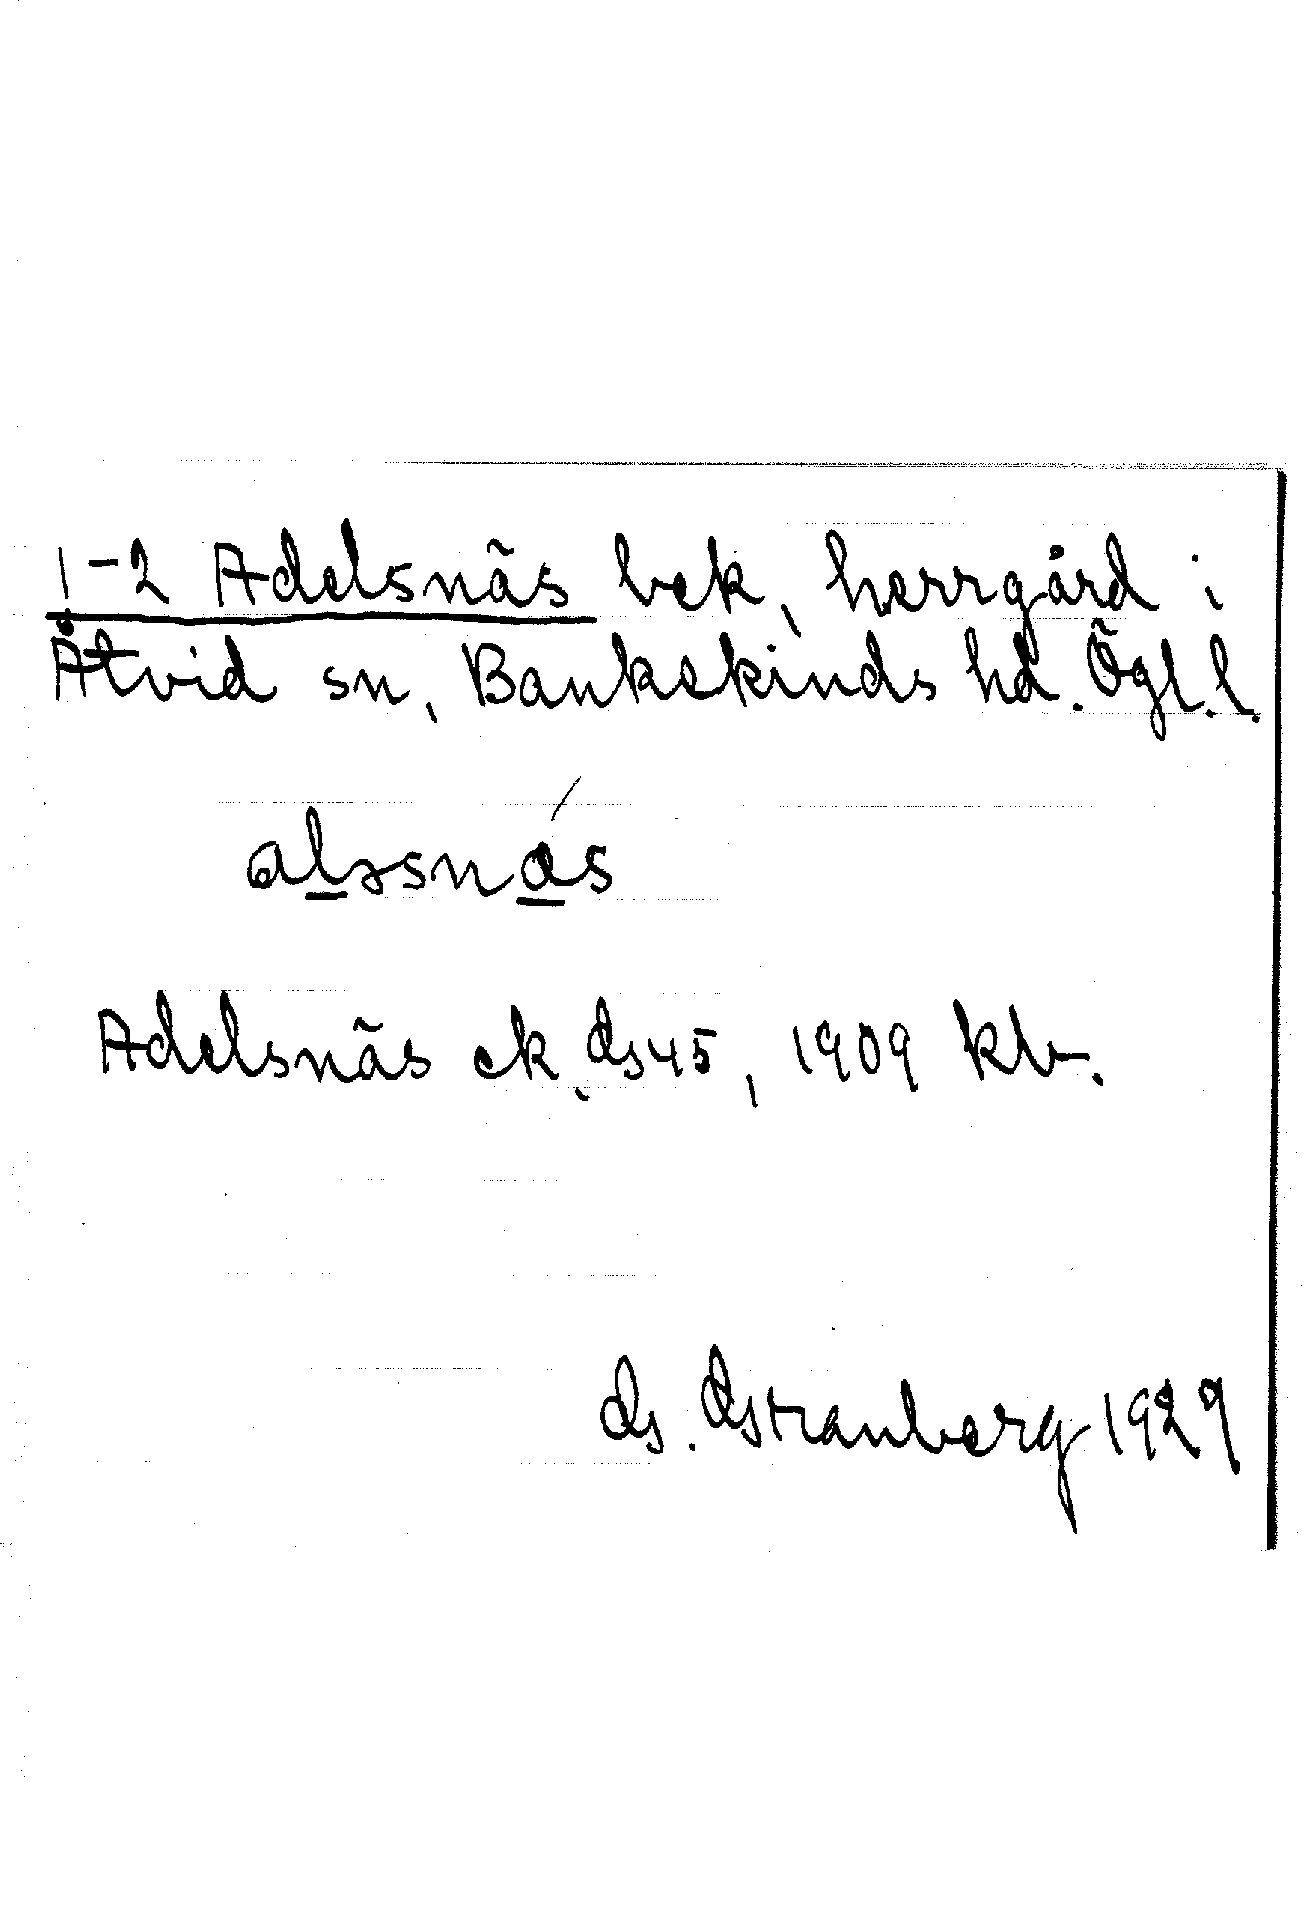 1-2 Adelsnäs bek, herrgård i
Åtvid sn, Bankekinds hd. Ögl.l.
alɜsnas
Adelsnäs ek. ds 45, 1909 kb.
1929